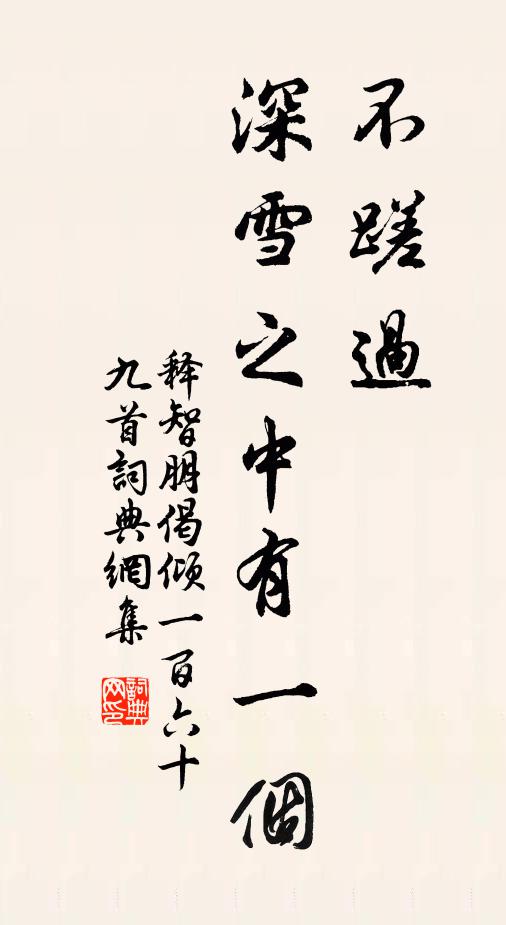 不蹉過
深雪之中有一個
释智朋偈倾一百六十
九首詞典網集
詞典网印